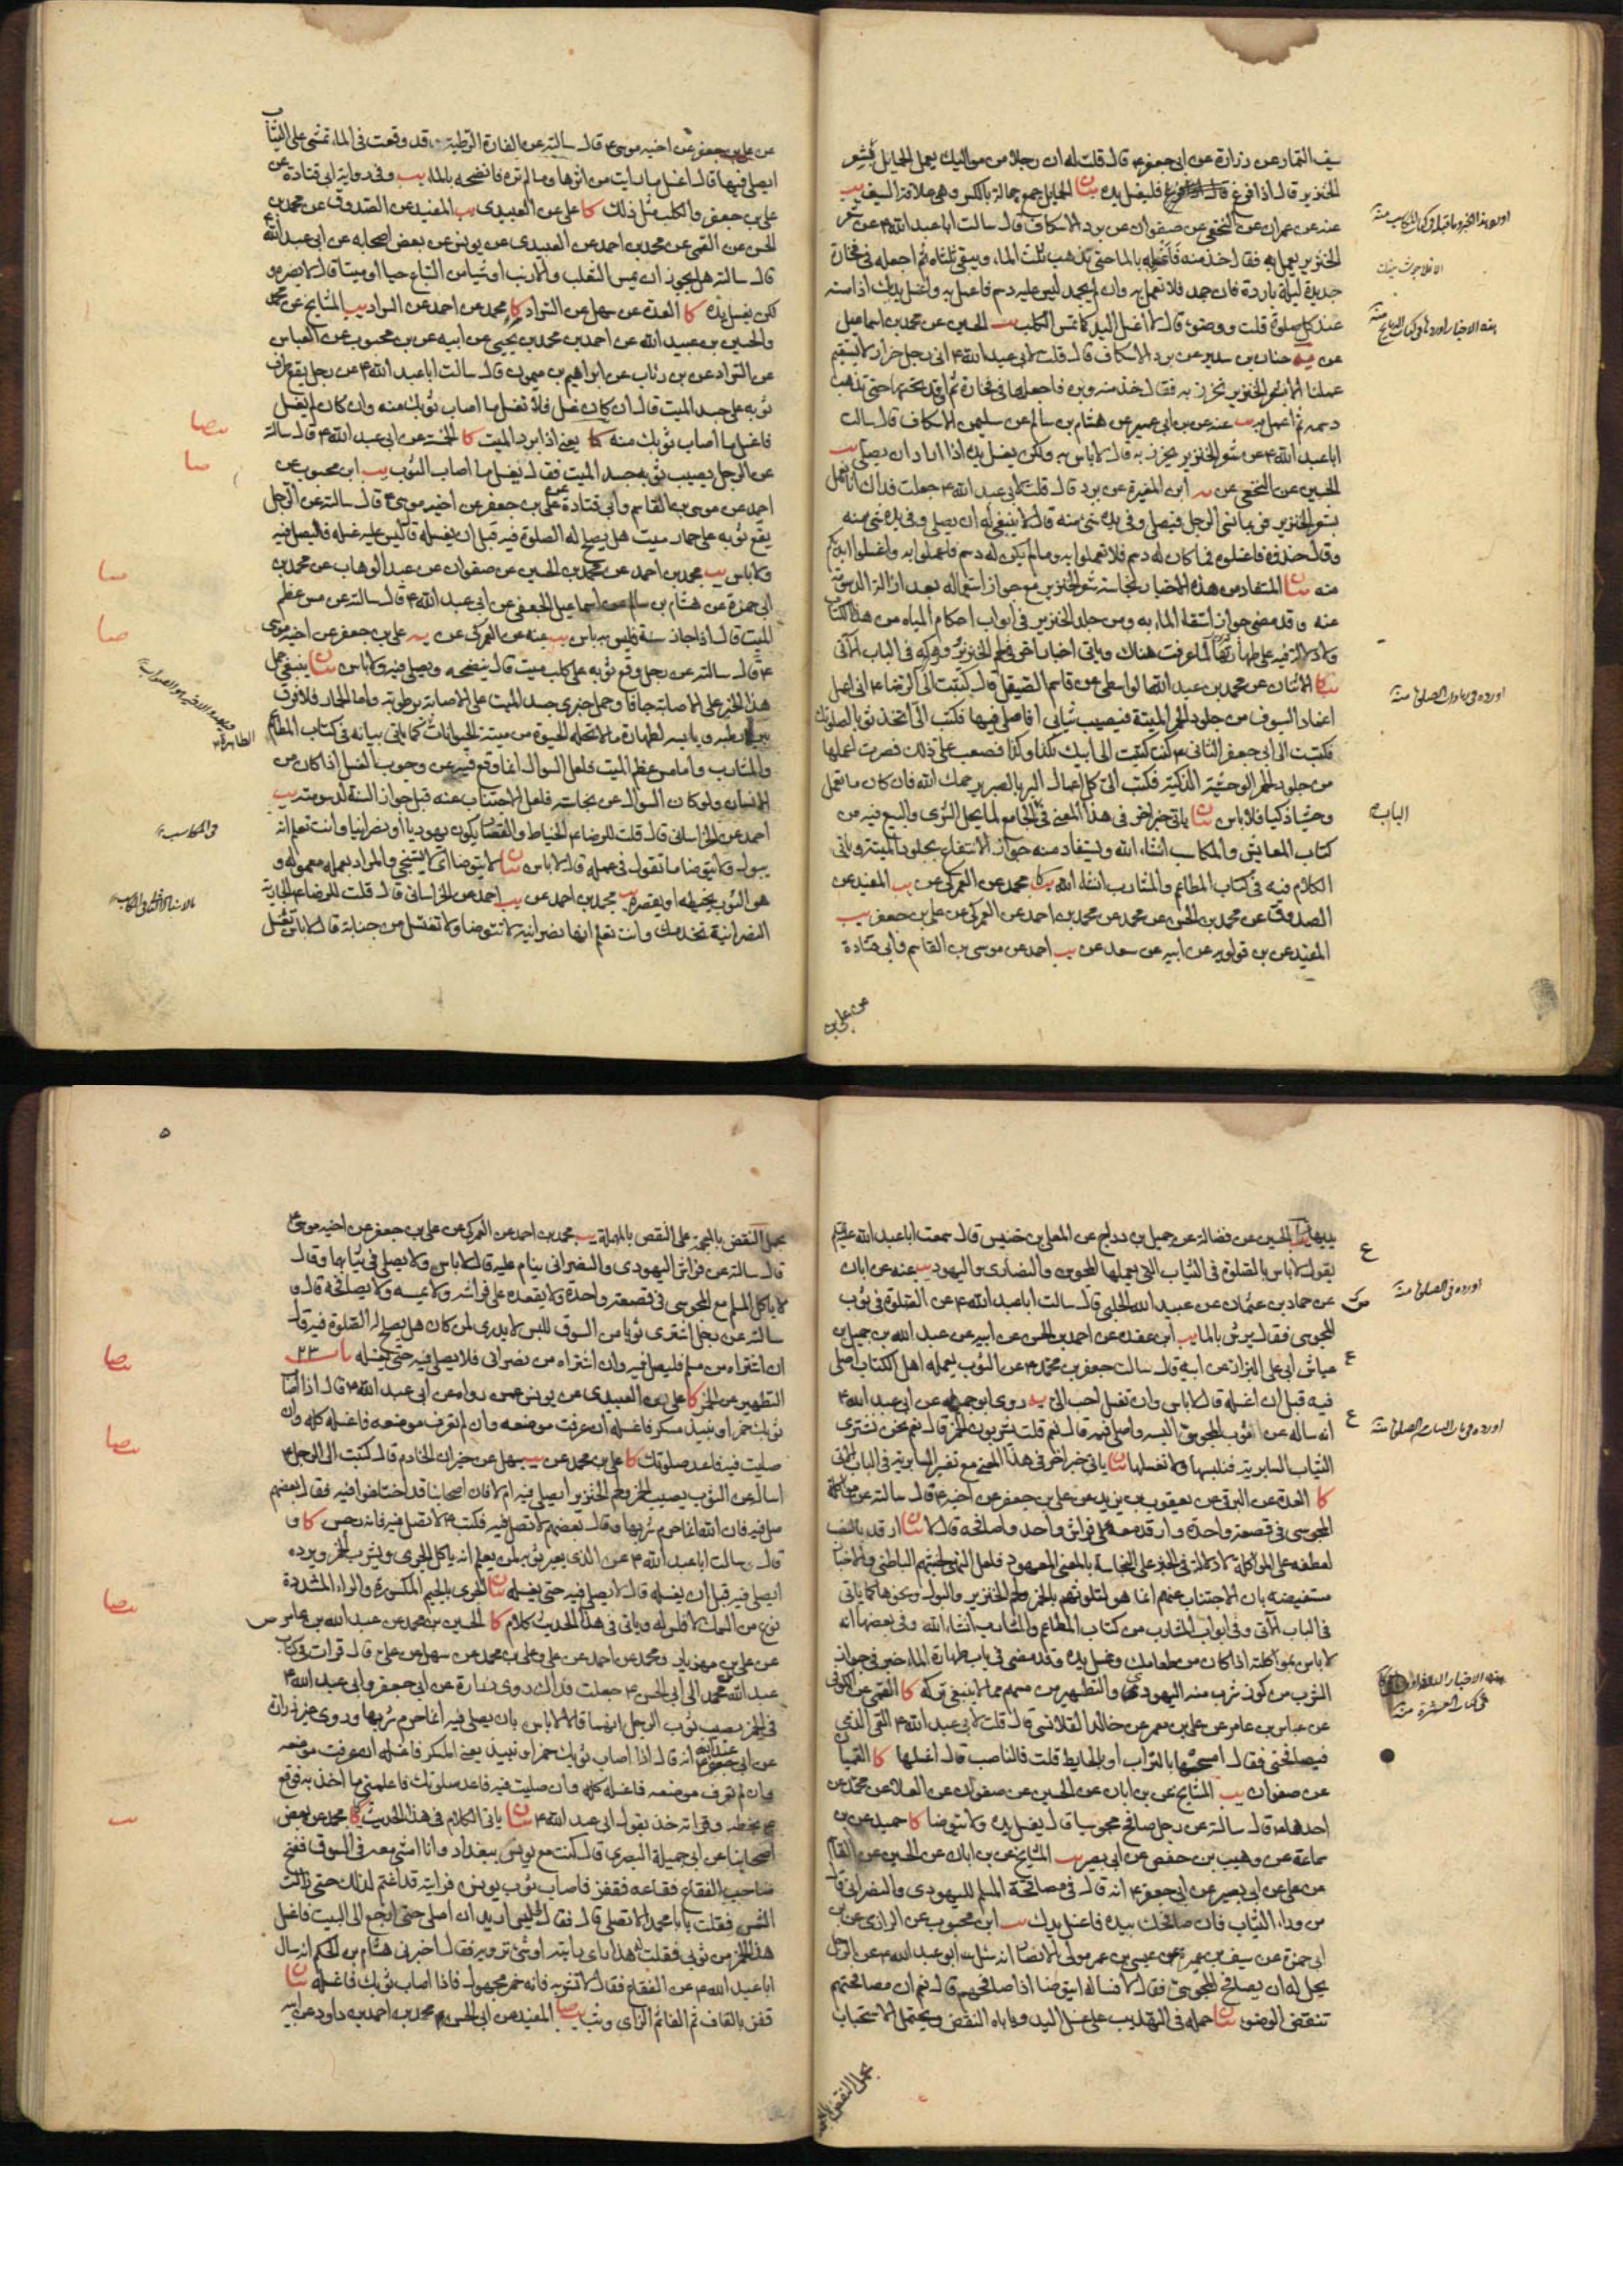 سيف التمار عن زرارة عن ابى جعفر ع قال قلت له ان رجلا من مواليك يعمل الحمايل بشعر
الخنزير قال اذا فرغ فليغسل يده بيان الحمايل جمع حمالة بالكسر وهى علاقة السيف يب
عنه عن عمران عن النخعى عن صفوان عن برد الاسكاف قال سالت ابا عبد الله ع عن شعر
الخنزير يعمل به فقال خذ منه فاغسله بالماء حتى يذهب ثلث الماء ويبقى ثلثاه ثم اجعله فى فخارة
جديدة ليلة باردة فان جمد فلا تعمل به وان لم يجمد ليس عليه دسم فاعمل به واغسل يدك اذا مسسته
عند كل صلوة قلت ووضوء قال لا اغسل اليد كما تمس الكلب يب الحسين عن محمد بن اسماعيل
عن يه حنان بن سدير عن برد الاسكاف قال قلت لابى عبد الله ع انى رجل خراز لا يستقيم
عملنا الا بشعر الخنزير نخرز به فقال خذ منه وبره فاجعلها فى فخارة ثم اوقد تحتها حتى تذهب
دسمه ثم اعمل به يب عنه عن بن ابى عمير عن هشام بن سالم عن سليمن الاسكاف قال سالت
ابا عبد الله ع عن شعر الخنزير يخرز به قال لا باس به ولكن يغسل يده اذا اراد ان يصلى يب
الحسين عن النخعى عن يه ابن المغيرة عن برد قال قلت لابى عبد الله ع جعلت فداك انا نعمل
بشعر الخنزير فربما نسى الرجل فيصلى وفى يده شىء منه قال لا ينبغى له ان يصلى وفى يده شىء منه
وقال خذوه فاغسلوه فما كان له دسم فلا تعملوا به وما لم يكن له دسم فاعملوا به واغسلوا ايديكم
منه بيان المستفاد من هذه الاخبار نجاسة شعر الخنزير مع جواز استعماله بعد ازالة الدسومة
عنه وقد مضى جواز استقاء الماء به ومن جلد الخنزير فى ابواب احكام المياه من هذا الكتاب
ولا دلالة فيه على طهارتها لما عرفت هناك وياتى اخبار اخر فى لحم الخنزير وغيره فى الباب الآتى
كا الاثنان عن محمد بن عبد الله الواسطى عن قاسم الصيقل قال كتبت الى الرضا ع انى اعمل
اغماد السيوف من جلود الحمر الميتة فيصيب ثيابى افاصلى فيها فكتب الى اتخذ ثوبا لصلوتك
فكتبت الى ابى جعفر الثانى ع كنت كتبت الى ابيك بكذا وكذا فصعب على ذلك فصرت اعملها
من جلود الحمر الوحشية الذكية فكتب الى كل اعمال البر بالصبر يرحمك الله فان كان ما تعمل
وحشيا ذكيا فلا باس بيان ياتى خبر اخر فى هذا المعنى فى الجامع لما يحل الشرى والبيع فيه من
كتاب المعايش والمكاسب انشاء الله ويستفاد منه جواز الانتفاع بجلود الميتة وياتى
الكلام فيه فى كتاب المطاعم والمشارب انشاء الله كا محمد عن العمركى عن يب المفيد عن
الصدوق عن محمد بن الحسن عن محمد عن محمد بن احمد عن العمركى عن على بن جعفر يب
المفيد عن بن قولويه عن ابيه عن سعد عن يب احمد عن موسى بن القاسم وابى قتادة
عن على بن
الباب
عن على بن جعفر عن اخيه موسى ع قال سالته عن الفارة الرطبة قد وقعت فى الماء تمشى على الثياب
ايصلى فيها قال اغسل ما رايت من اثرها وما لم تره فانضحه بالماء يب وفى رواية ابى قتادة عن
على بن جعفر والكلب مثل ذلك كا على عن العبيدى يب المفيد عن الصدوق عن محمد بن
الحسن عن القمى عن محمد بن احمد عن العبيدى عن يونس عن بعض اصحابه عن ابى عبد الله ع
قال سالته هل يجوز ان يمس الثعلب والارنب او شيا من السباع حيا او ميتا قال لا يضره و
لكن يغسل يده كا العدة عن سهل عن السراد كا محمد عن احمد عن السراد يب المشايخ عن محمد
والحسين بن عبيد الله عن احمد بن محمد بن يحيى عن ابيه عن بن محبوب عن العباس
عن السراد عن بن رئاب عن ابراهيم بن ميمون قال سالت ابا عبد الله ع عن رجل يقع طرف
ثوبه على جسد الميت قال ان كان غسل فلا تغسل ما اصاب ثوبك منه وان كان لم يغسل
فاغسل ما اصاب ثوبك منه كا يعنى اذا برد الميت كا الخمسة عن ابى عبد الله ع قال سالته
عن الرجل يصيب ثوبه جسد الميت فقال يغسل ما اصاب الثوب يب ابن محبوب عن
احمد عن موسى بن القاسم وابى قتادة عن على بن جعفر عن اخيه موسى ع قال سالته عن الرجل
يقع ثوبه على حمار ميت هل يصلح له الصلوة فيه قبل ان يغسله قال ليس عليه غسله فليصل فيه
ولا باس يب محمد بن احمد عن محمد بن الحسين عن صفوان عن عبد الوهاب عن محمد بن
ابى حمزة عن هشام بن سالم عن اسماعيل الجعفى عن ابى عبد الله ع قال سالته عن مس عظم
الميت قال اذا جاز سنة فليس به باس يب عنه عن العمركى عن يه على بن جعفر عن اخيه موسى
ع قال سالته عن رجل وقع ثوبه على كلب ميت قال ينضحه ويصلى فيه ولا باس بيان ينبغى حمل
هذا الخبر على الاصابة جافا وحمل خبرى جسد الميت على الاصابة برطوبة واما الحمار فلا فرق
بين رطبه ويابسه لطهارة ما لا تحله الحيوة من ميتة الحيوانات كما ياتى بيانه فى كتاب المطاعم
والمشارب واما مس عظم الميت فلعل السوال انما وقع فيه عن وجوب الغسل اذا كان من
الانسان ولو كان السوال عن نجاسته فلعل الاجتناب عنه قبل جواز السنة لدسومته يب
احمد عن الخراسانى قال قلت للرضا ع الخياط والقصار يكون يهوديا او نصرانيا وانت تعلم انه
يبول ولا يتوضا ما تقول فى عمله قال لا باس بيان لا يتوضا اى لا يستنجى والمراد بعمله معموله و
هو الثوب يخيطه او يقصره يب محمد بن احمد عن يب احمد عن الخراسانى قال قلت للرضا ع الجارية
النصرانية تخدمك وانت تعلم انها نصرانية لا تتوضا ولا تغتسل من جنابة قال لا باس تغسل
فى المكاسب
يديها يب الحسين عن فضالة عن جميل بن دراج عن المعلى بن خنيس قال سمعت ابا عبد الله عليه السلام
يقول لا باس بالصلوة فى الثياب التى يعملها المجوس والنصارى واليهود يب عنه عن ابان
عن حماد بن عثمان عن عبيد الله الحلبى قال سالت ابا عبد الله ع عن الصلوة فى ثوب
المجوسى فقال يرش بالماء يب ابن عقدة عن احمد بن الحسن عن ابيه عن عبد الله بن جميل بن
عياش ابى على البزاز عن ابيه قال سالت جعفر بن محمد ع عن الثوب يعمله اهل الكتاب اصلى
فيه قبل ان اغسله قال لا باس وان تغسل احب الى يه روى ابو جميلة عن ابى عبد الله ع
انه ساله عن ثوب المجوسى البسه واصلى فيه قال نعم قلت يشربون الخمر قال نعم نحن نشترى
الثياب السابرية فنلبسها ولا نغسلها بيان ياتى خبر اخر فى هذا المعنى مع تفسير السابرية فى الباب الاتى
كا العدة عن البرقى عن يعقوب بن يزيد عن على بن جعفر عن اخيه ع قال سالته عن مواكلة
المجوسى فى قصعة واحدة وارقد معه على فراش واحد واصافحه قال لا بيان ارقد بالنصب
لعطفه على المواكلة لا دلالة فى الخبر على النجاسة بالمعنى المعهود فلعل النهى لخبثهم الباطنى والاخبار
مستفيضة بان الاجتناب عنهم انما هو لتلوثهم بالخمر ولحم الخنزير والبول ونحوها كما ياتى
فى الباب الآتى وفى ابواب المشارب من كتاب المطاعم والمشارب انشاء الله وفى بعضها انه
لا باس بمواكلته اذا كان من طعامك وغسل يده وقد مضى فى باب طهارة الماء خبر فى جواز
الشرب من كوز شرب منه اليهودى والتطهير من مسهم مما لا ينبغى تركه كا القمى عن الكوفى
عن عباس بن عامر عن على بن معمر عن خالد القلانسى قال قلت لابى عبد الله ع القى الذمى
فيصافحنى فقال امسحها بالتراب او بالحايط قلت فالناصب قال اغسلها كا القميان
عن صفوان يب المشايخ عن بن ابان عن الحسين عن صفوان عن العلا عن محمد عن
احدهما ع قال سالته عن رجل صافح مجوسيا قال يغسل يده ولا يتوضا كا حميد عن بن
سماعة عن وهيب بن حفص عن ابى بصير يب المشايخ عن بن ابان عن الحسين عن القاسم
عن على عن ابى بصير عن ابى جعفر ع انه قال فى مصافحة المسلم لليهودى والنصرانى قال
من وراء الثياب فان صافحك بيده فاغسل يدك يب ابن محبوب عن الرازى عن بن
ابى حمزة عن سيف بن عميرة عن عيسى بن عمر مولى الانصار انه سئل ابو عبد الله ع عن الرجل
يحل له ان يصافح المجوسى فقال لا فساله ايتوضا اذا صافحهم قال نعم ان مصافحتهم
تنقض الوضوء بيان حمله فى التهذيب على غسل اليد وياباه النقض ويحتمل الاستحباب
بحمل النقض
٥
بحمل النقض بالمعجمة على النقص بالمهملة يب محمد بن احمد عن العمركى عن على بن جعفر عن اخيه موسى ع
قال سالته عن فراش اليهودى والنصرانى ينام عليه قال لا باس ولا يصلى فى ثيابهما وقال
لا ياكل المسلم مع المجوسى فى قصعة واحدة ولا يقعده على فراشه ولا مسجده ولا يصافحه قال و
سالته عن رجل اشترى ثوبا من السوق للبس لا يدرى لمن كان هل يصلح له الصلوة فيه قال
ان اشتراه من مسلم فليصل فيه وان اشتراه من نصرانى فلا يصلى فيه حتى يغسله باب ٢٣
التطهير من الخمر كا على عن العبيدى عن يونس عمن رواه عن ابى عبد الله ع قال اذا اصاب
ثوبك خمر او نبيذ مسكر فاغسله ان عرفت موضعه وان لم تعرف موضعه فاغسله كله وان
صليت فيه فاعد صلوتك كا على بن محمد عن يب سهل عن خيران الخادم قال كتبت الى الرجل ع
اساله عن الثوب يصيبه الخمر ولحم الخنزير ايصلى فيه ام لا فان اصحابنا قد اختلفوا فيه فقال بعضهم
صل فيه فان الله انما حرم شربها وقال بعضهم لا تصل فيه فكتب ع لا تصل فيه فانه رجس كا و
قال سالت ابا عبد الله ع عن الذى يعير ثوبه لمن يعلم انه ياكل الجرى ويشرب الخمر ويرده
ايصلى فيه قبل ان يغسله قال لا يصلى فيه حتى يغسله بيان الجرى بالجيم المكسورة والراء المشددة
نوع من السمك لا فلس له وياتى فى هذا الحديث كلام كا الحسين بن محمد عن عبد الله بن عامر
عن على بن مهزيار ومحمد عن احمد عن على وعلى بن محمد عن سهل عن على قال قرات فى كتاب
عبد الله بن محمد الى ابى الحسن ع جعلت فداك روى زرارة عن ابى جعفر وابى عبد الله ع
فى الخمر يصيب ثوب الرجل انهما قالا لا باس بان يصلى فيه انما حرم شربها وروى غير زرارة
عن ابى عبد الله انه قال اذا اصاب ثوبك خمر او نبيذ يعنى المسكر فاغسله ان عرفت موضعه
وان لم تعرف موضعه فاغسله كله وان صليت فيه فاعد صلوتك فاعلمنى ما اخذ به فوقع
ع بخطه وقراته خذ بقول ابى عبد الله ع بيان ياتى الكلام فى هذا الحديث كا محمد عن بعض
اصحابنا عن ابى جميلة البصرى قال كنت مع يونس ببغداد وانا امشى معه فى السوق ففتح
صاحب الفقاع فقاعه فقفز فاصاب ثوب يونس فرايته قد اغتم لذلك حتى زالت
الشمس فقلت يا ابا محمد الا تصلى قال فقال ليس اريد ان اصلى حتى ارجع الى البيت فاغسل
هذا الخمر من ثوبى فقلت له هذا راى رايته او شىء ترويه فقال اخبرنى هشام بن الحكم انه سال
ابا عبد الله ع عن الفقاع فقال لا تشربه فانه خمر مجهول فاذا اصاب ثوبك فاغسله بيان
قفز بالقاف ثم الفاء ثم الزاى وثب يب صا المفيد عن ابى الحسن محمد بن احمد بن داود عن ابيه